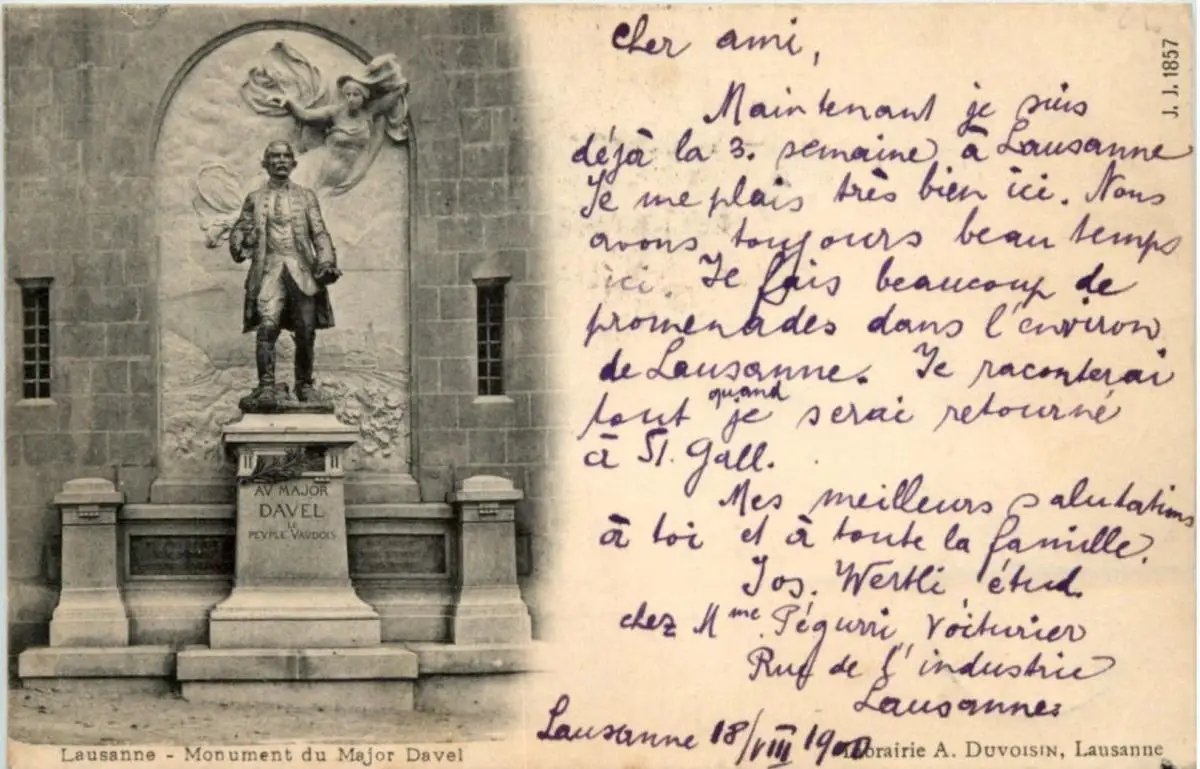 cher ami,
Maintenant je suis
déjà la 3. semaine à Lausanne
Je me plais très bien ici. Nous
avons toujours beau temps
ici. Je fais beaucoup de
promenades dans l'environ
de Lausanne. Je raconterai
tout quand je serai retourné
à St. Gall.
Mes meilleurs salutations
à toi et à toute la famille.
Jos. Wertli, étud.
chez Mme Pégurri, Voiturier
Rue de l'industrie
Lausanne
Lausanne 18/VIII 1900
J. J. 1857
AV MAJOR
DAVEL
LE
PEVPLE VAUDOIS
Lausanne - Monument du Major Davel
Librairie A. DUVOISIN, Lausanne